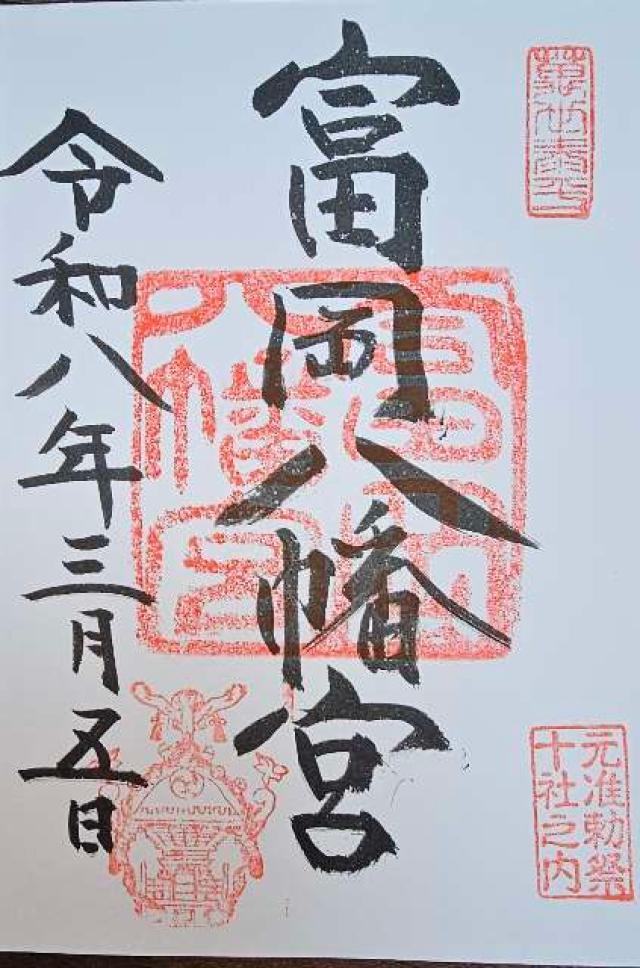 富岡八幡宮
令和八年三月五日
富岡
八幡宮
元准勅祭
十社之内